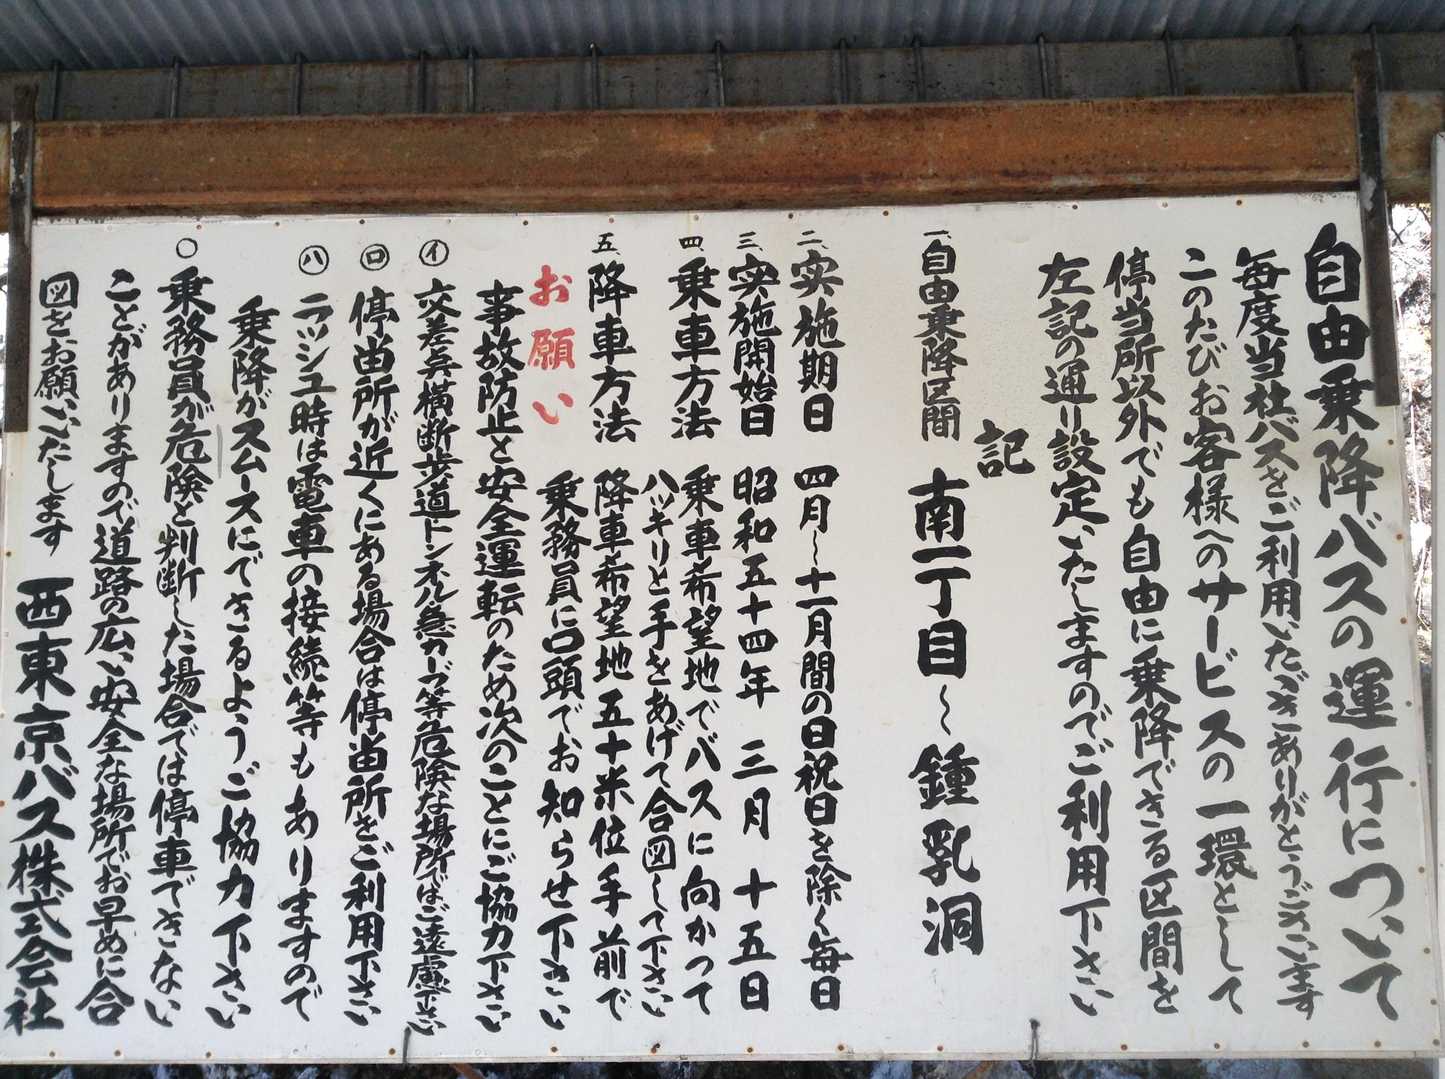 自由乗降バスの運行について
毎度当社バスをご利用いただきありがとうございます
このたびお客様へのサービスの一環として
停当所以外でも自由に乗降できる区間を
左記の通り設定いたしますのでご利用下さい
記
一、自由乗降区間 南一丁目～鍾乳洞
二、実施期日 四月～十一月間の日祝日を除く毎日
三、実施開始日 昭和五十四年 三月 十五日
四、乗車方法 乗車希望地でバスに向かって
ハッキリと手をあげて合図して下さい
五、降車方法 降車希望地五十米位手前で
乗務員に口頭でお知らせ下さい
お願い
事故防止と安全運転のため次のことにご協力下さい
㋑ 交差点横断歩道トンネル急カーブ等危険な場所ではご遠慮下さい
㋺ 停当所が近くにある場合は停当所をご利用下さい
㋩ ラッシュ時は電車の接続等もありますので
乗降がスムースにできるようご協力下さい
○ 乗務員が危険と判断した場合では停車できない
ことがありますので道路の広い安全な場所でお早めに合
図をお願いいたします 西東京バス株式会社